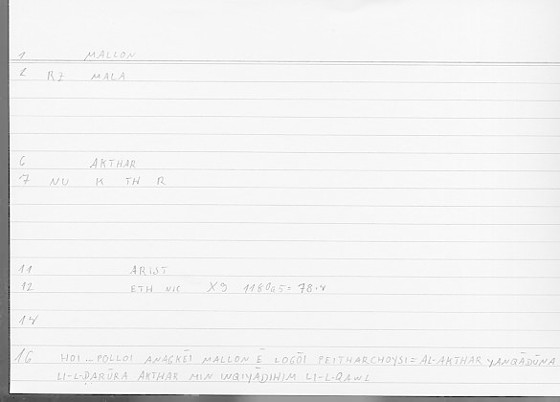 1 MALLON
2 RZ MALA
6 AKTHAR
7 NU K TH R
11 ARIST
12 ETH NIC X9 1180a5 = 78.8
14
16 HOI ... POLLOI ANAGKĒI MALLON Ē LOGŌI PEITHARCHOYSI = AL-AKTHAR YANQĀDŪNA
LI-L-ḌARŪRA AKTHAR MIN INQIYĀDIHIM LI-L-QAWL